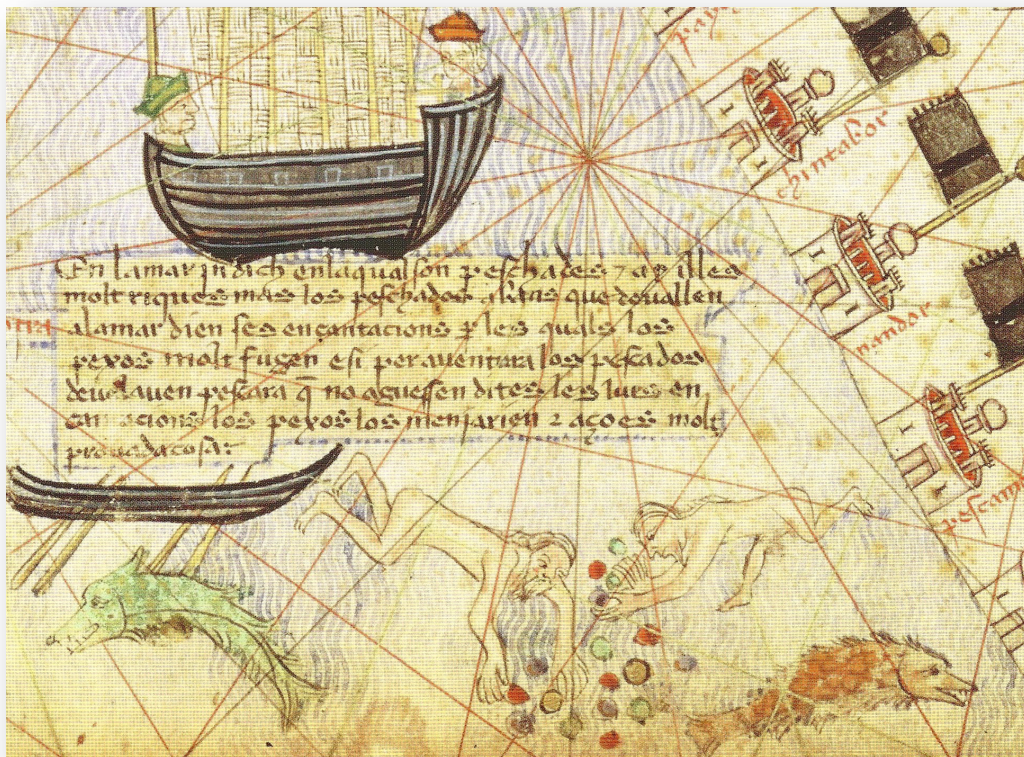 En lamar jndich enlaqual son peschades 7 ay illes
molt riques mas los peschados abans que devallen
alamar dien ses encantacions per les quals los
pexos molt fugen e si per aventura los pescados
devalaven pescara q̄ no aguessen dites les lurs en
cantacions los pexos los menjarien 2 açoes molt
provada cosa:
chintabor
nandor